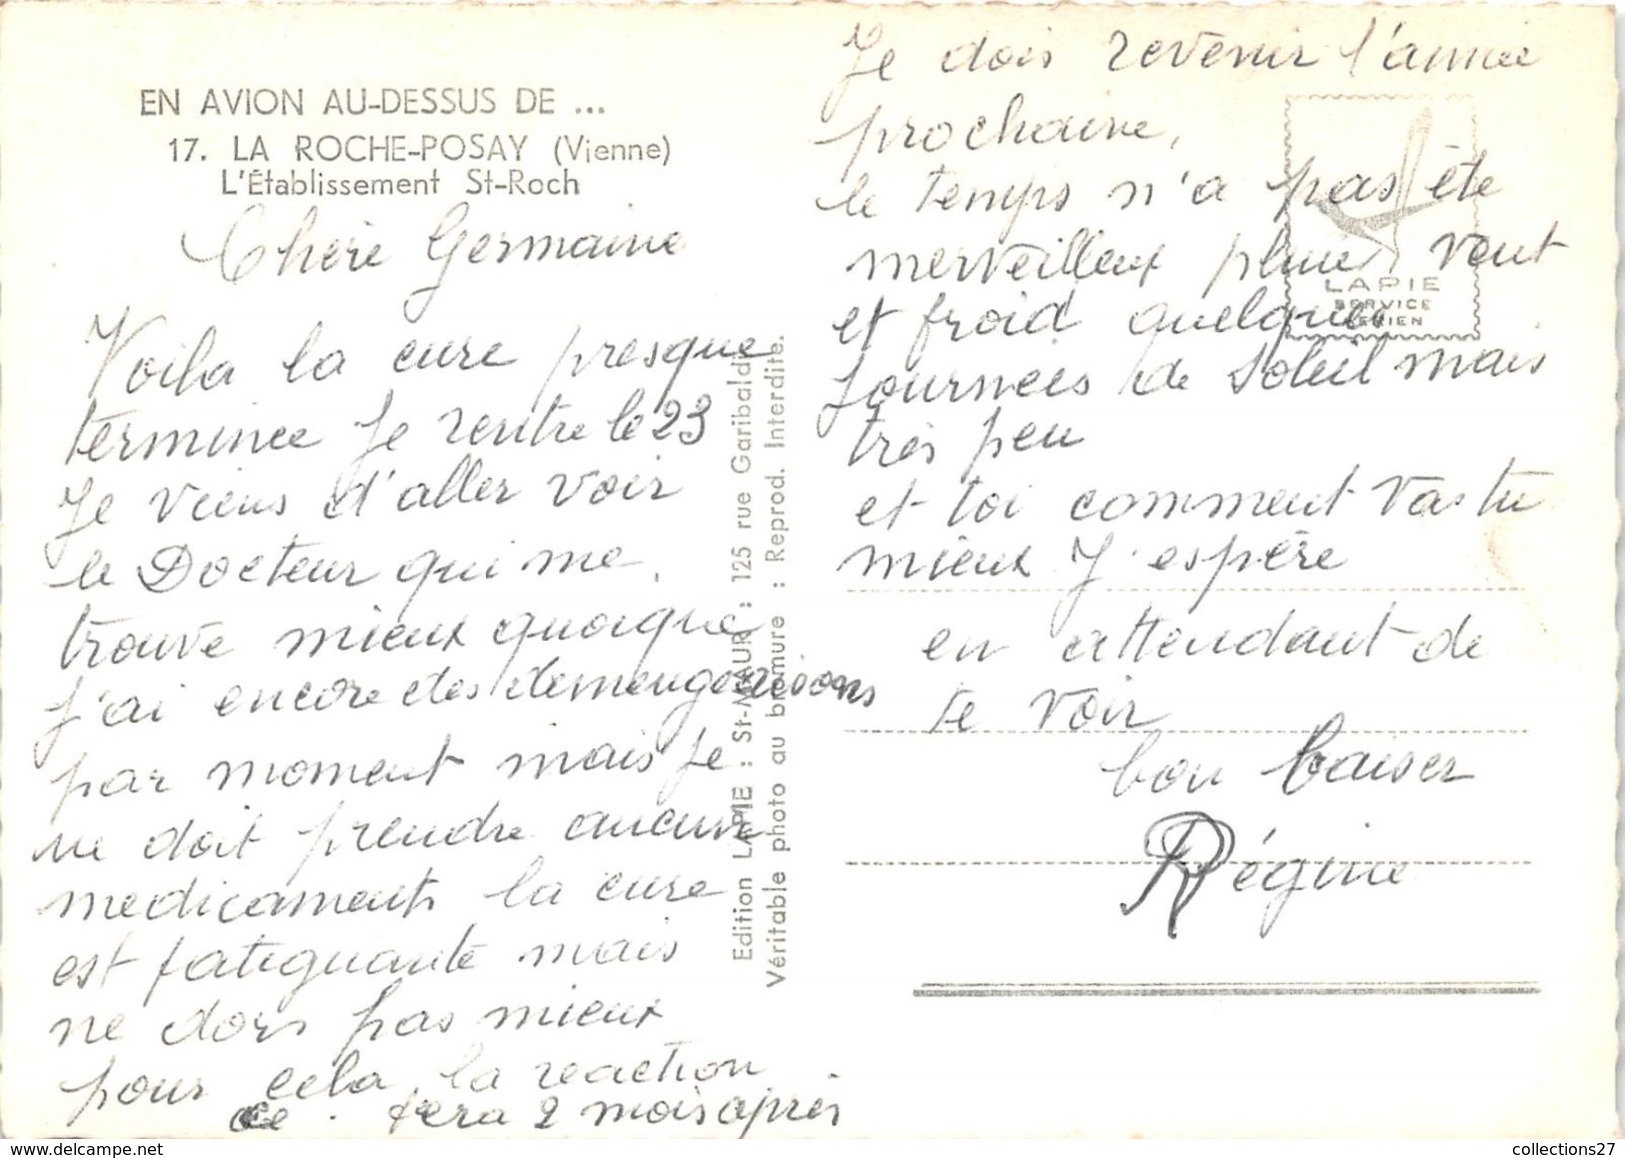 EN AVION AU-DESSUS DE ...
17. LA ROCHE-POSAY (Vienne)
L'Établissement St-Roch
Chère Germaine
Voila la cure presque
terminée Je rentre le 23
Je viens d'aller voir
le Docteur qui me
trouve mieux quoique
j'ai encore des demengeaisons
par moment mais je
ne doit prendre aucune
medicament, la cure
est fatiguante mais
ne dors pas mieux
pour cela, la reaction
ce fera 2 mois après
Edition LAPIE : St-MAUR : 125 rue Garibaldi.
Véritable photo au bromure : Reprod. Interdite.
Je dois revenir l'année
prochaine,
le temps n'a pas été
merveilleux pluie, vent
et froid quelques
journées de soleil mais
très peu
et toi comment vas tu
mieux J'espère
en attendant de
te voir
bon baiser
Régine
LAPIE
SERVICE
AERIEN
collections27